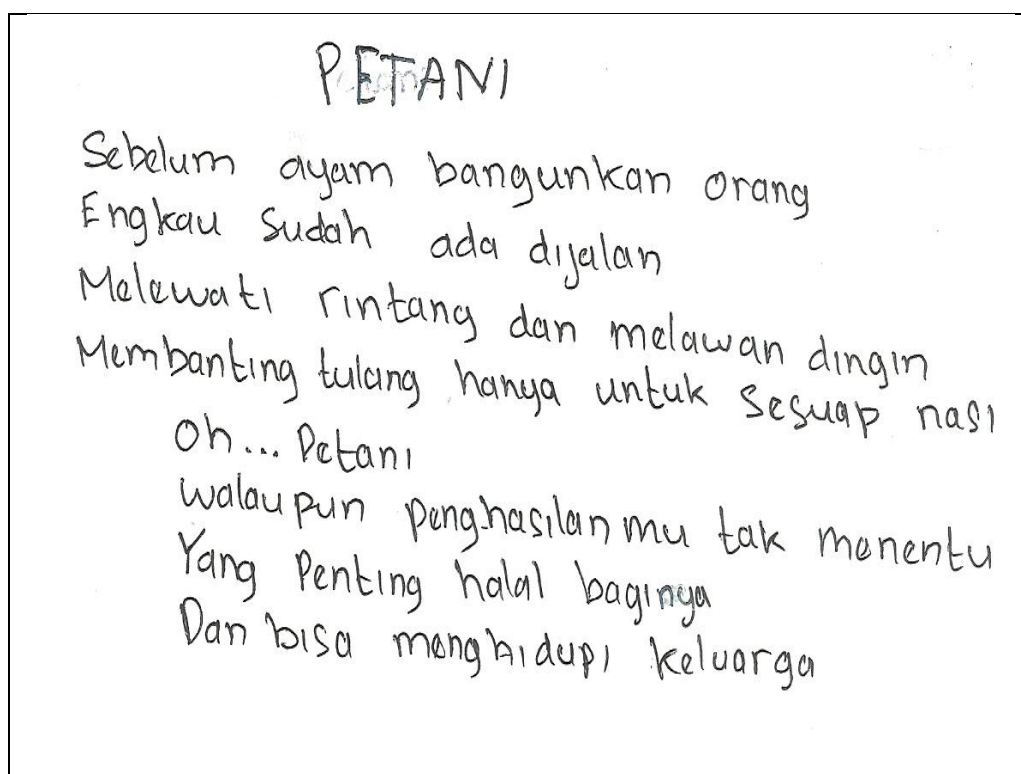 PETANI
Sebelum ayam bangunkan orang
Engkau Sudah ada dijalan
Melewati rintang dan melawan dingin
Membanting tulang hanya untuk Sesuap nasi
Oh... Petani
walaupun penghasilan mu tak menentu
Yang Penting halal baginya
Dan bisa menghidupi keluarga